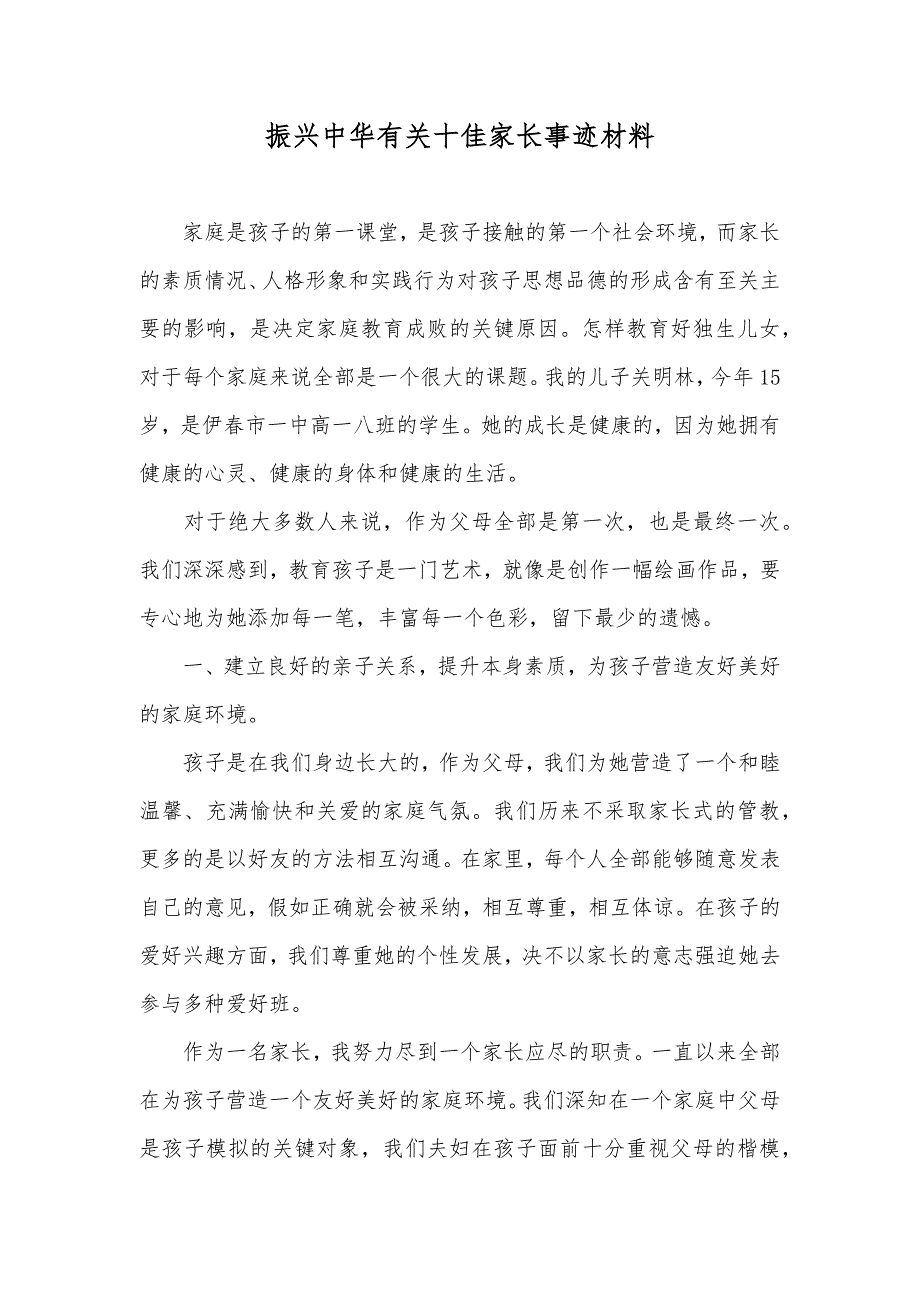 振兴中华有关十佳家长事迹材料
家庭是孩子的第一课堂，是孩子接触的第一个社会环境，而家长
的素质情况、人格形象和实践行为对孩子思想品德的形成含有至关主
要的影响，是决定家庭教育成败的关键原因。怎样教育好独生儿女，
对于每个家庭来说全部是一个很大的课题。我的儿子关明林，今年 15
岁，是伊春市一中高一八班的学生。她的成长是健康的，因为她拥有
健康的心灵、健康的身体和健康的生活。
对于绝大多数人来说，作为父母全部是第一次，也是最终一次。
我们深深感到，教育孩子是一门艺术，就像是创作一幅绘画作品，要
专心地为她添加每一笔，丰富每一个色彩，留下最少的遗憾。
一、建立良好的亲子关系，提升本身素质，为孩子营造友好美好
的家庭环境。
孩子是在我们身边长大的，作为父母，我们为她营造了一个和睦
温馨、充满愉快和关爱的家庭气氛。我们历来不采取家长式的管教，
更多的是以好友的方法相互沟通。在家里，每个人全部能够随意发表
自己的意见，假如正确就会被采纳，相互尊重，相互体谅。在孩子的
爱好兴趣方面，我们尊重她的个性发展，决不以家长的意志强迫她去
参与多种爱好班。
作为一名家长，我努力尽到一个家长应尽的职责。一直以来全部
在为孩子营造一个友好美好的家庭环境。我们深知在一个家庭中父母
是孩子模拟的关键对象，我们夫妇在孩子面前十分重视父母的楷模，